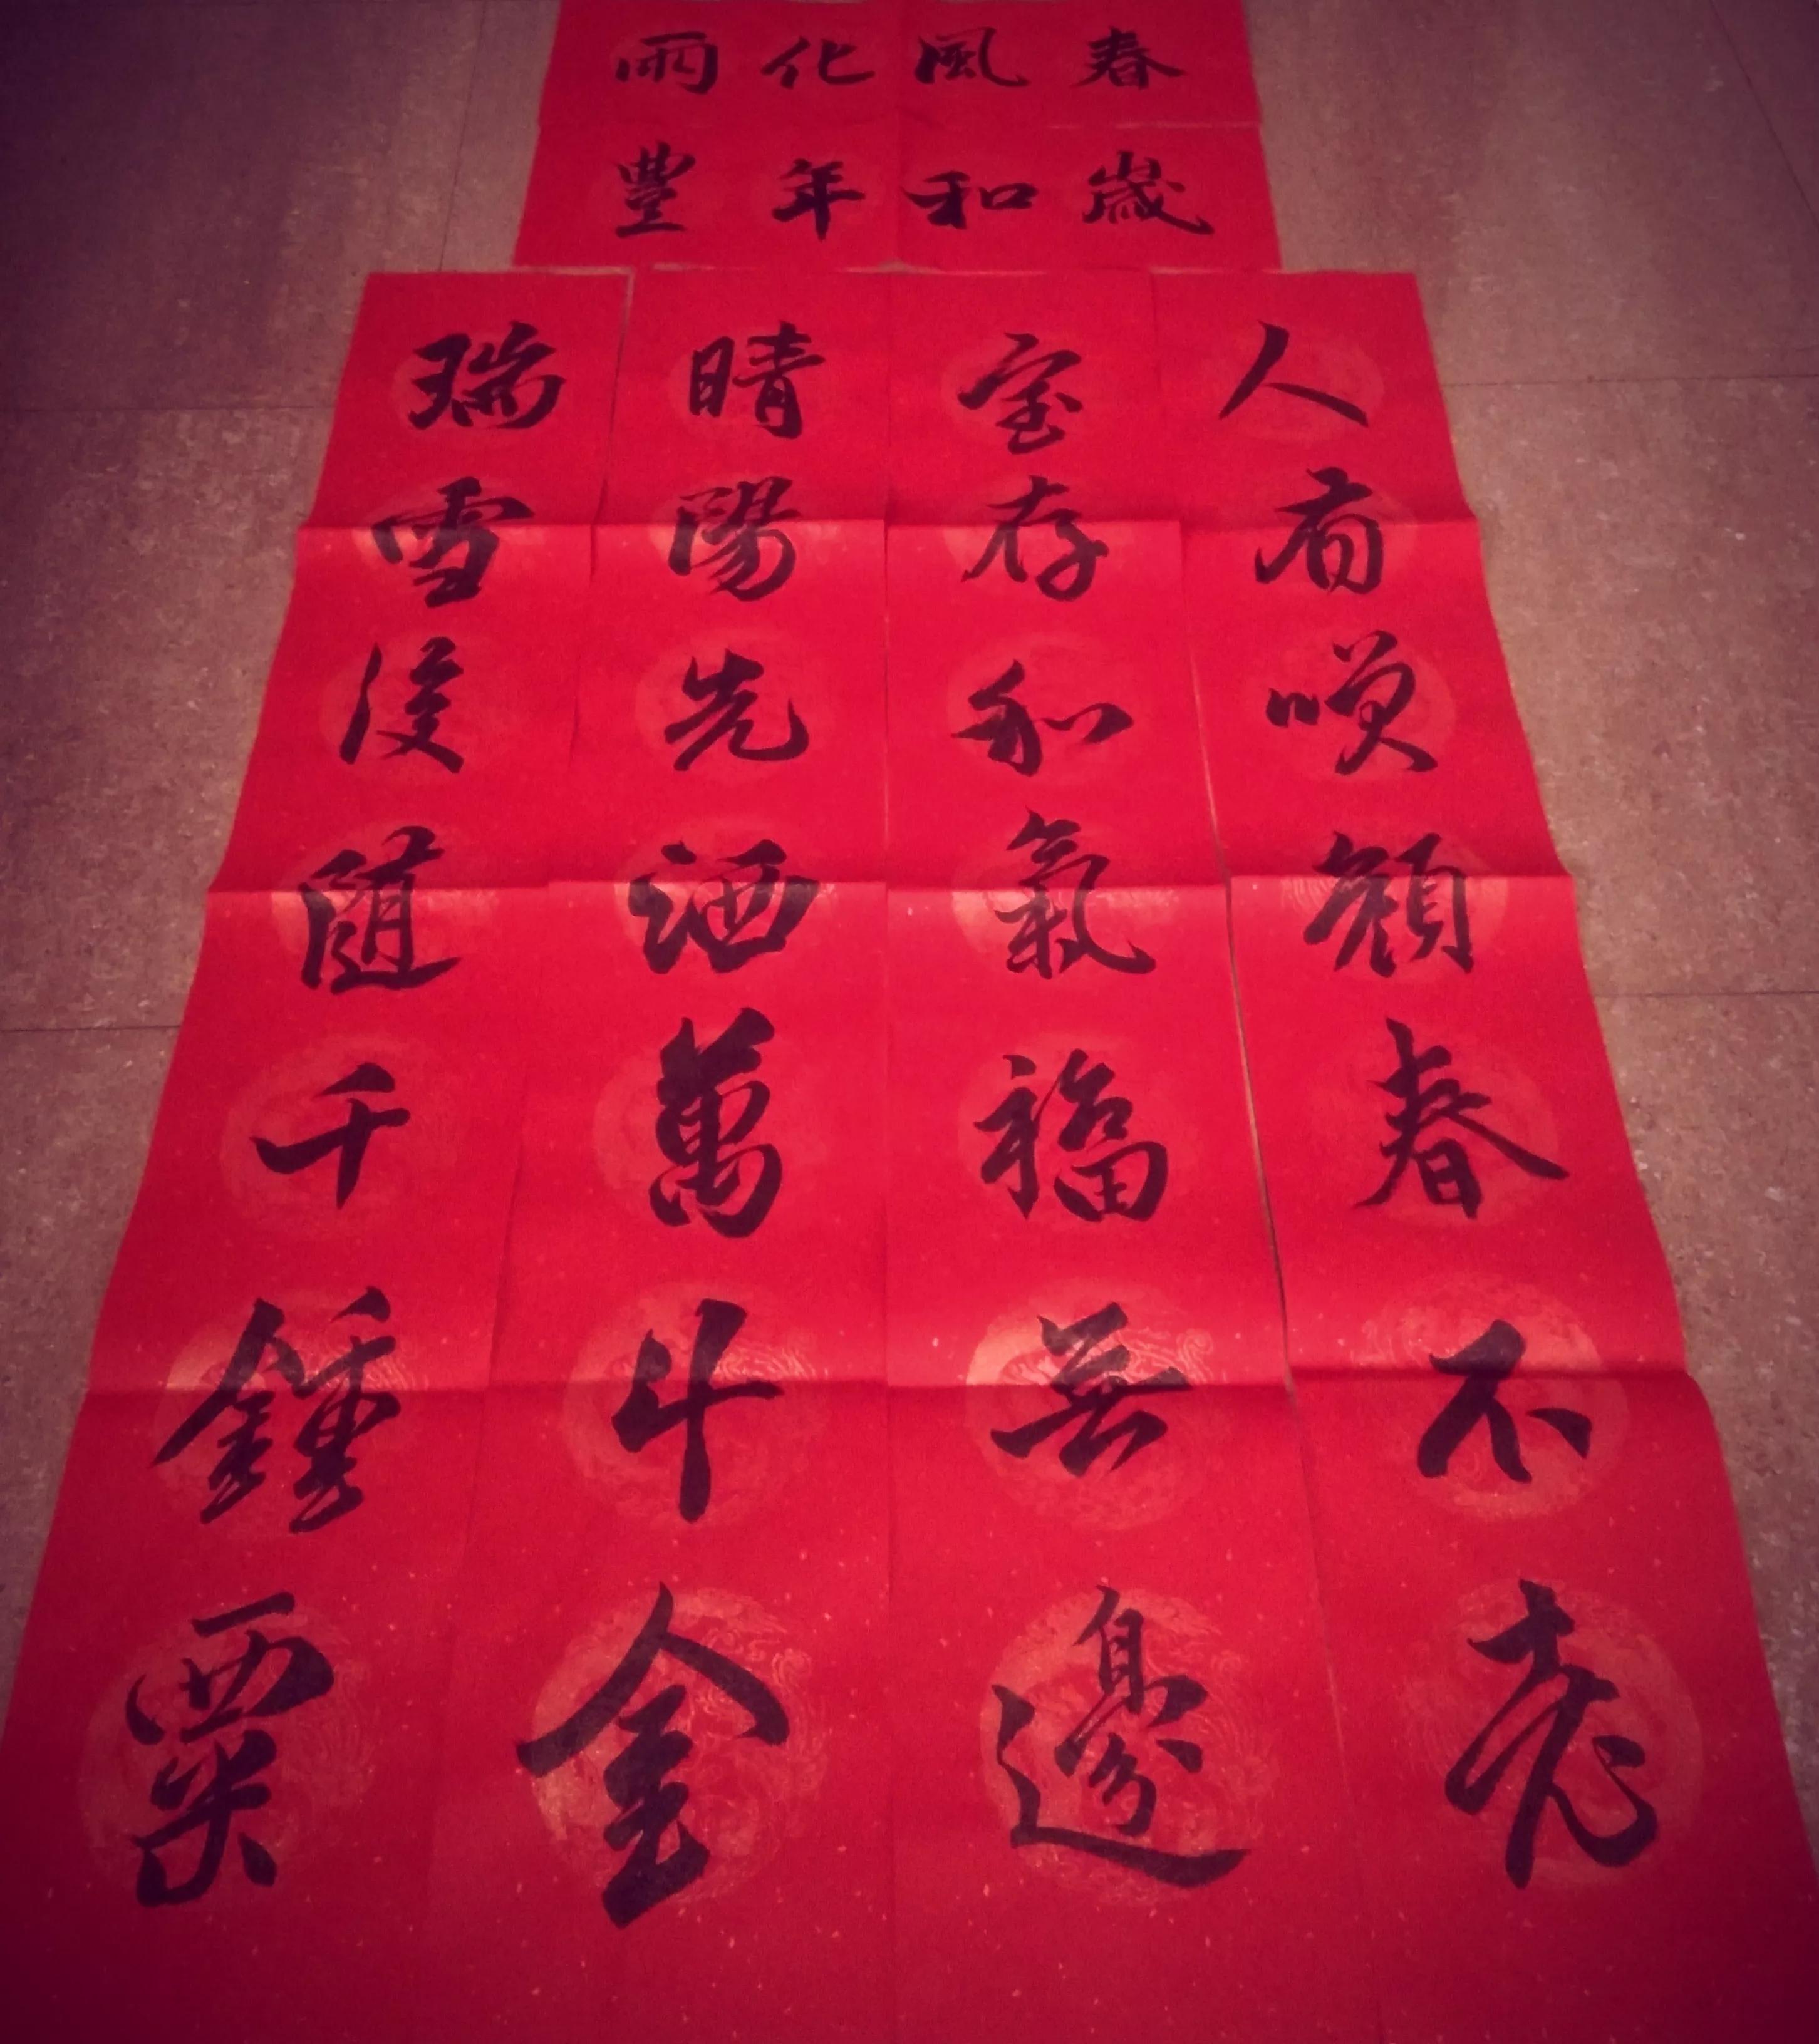 春風化雨
歲和年豐
人有咲顏春不老
室存和氣福無邊
晴陽先洒萬斗金
瑞雪後随千鍾粟